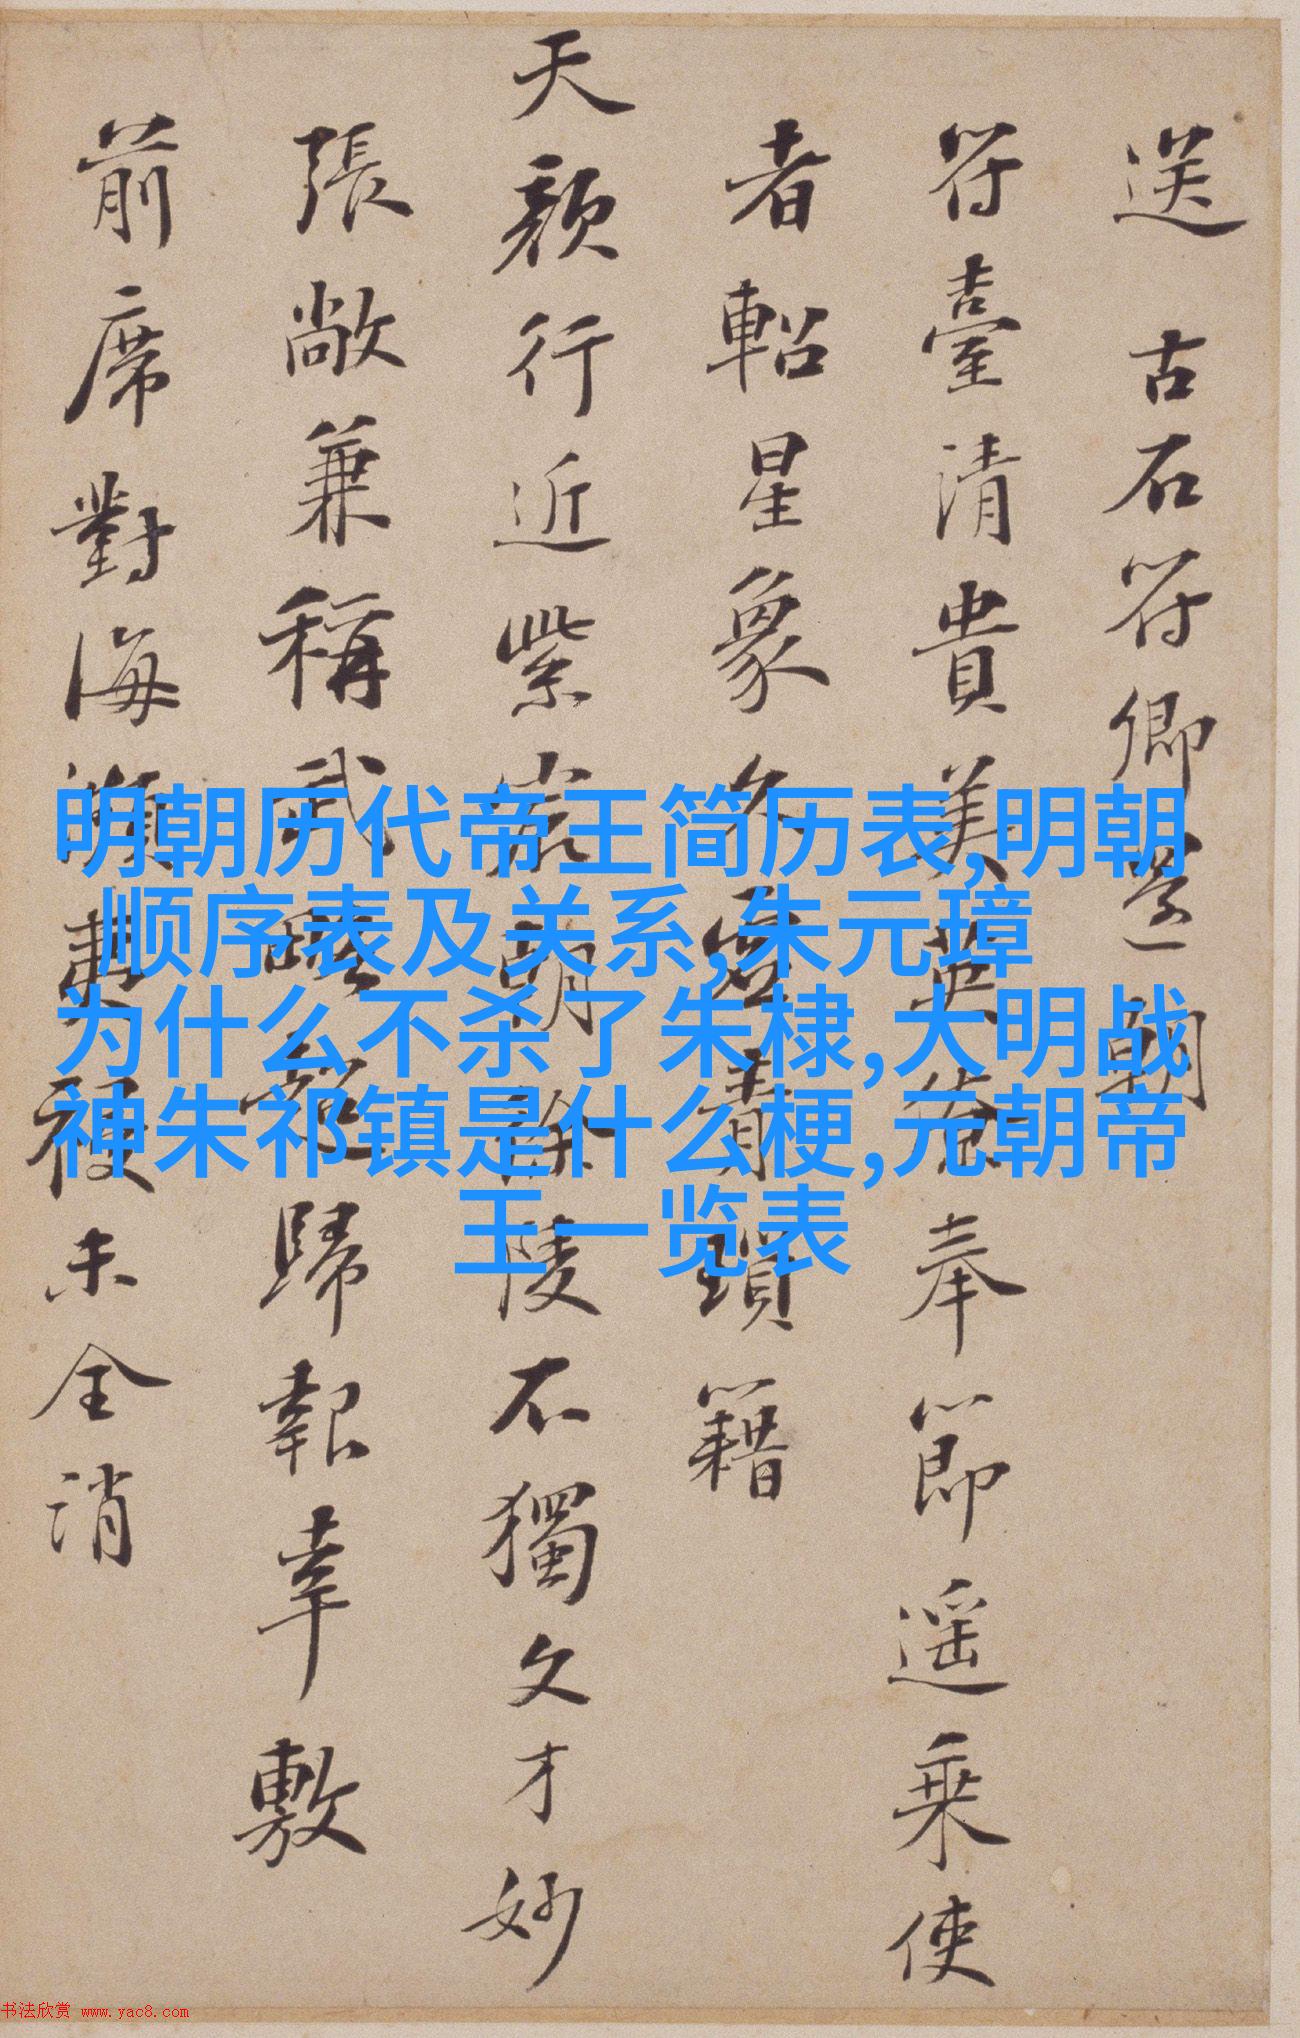 送 古石符卿還朝
符臺清貴美英僚奉節遥乘使
者軺星象久青瑣籍
天顏行近紫宸朝徐陵不獨文才妙
張敞兼稱武略饒歸報幸敷
前席對海瀕梗未全消
明朝历代帝王简历表,明朝
顺序表及关系,朱元璋
为什么不杀了朱棣,大明战
神朱祁镇是什么梗,元朝帝
王一览表
书法欣赏 www.yac8.com